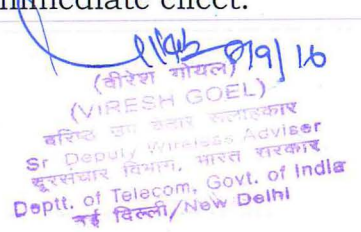 immediate effect.
8/9/16
(वीरेश गोयल)
(VIRESH GOEL)
वरिष्ठ उप बेतार सलाहकार
Sr Deputy Wireless Adviser
दूरसंचार विभाग, भारत सरकार
Deptt. of Telecom, Govt. of India
नई दिल्ली/New Delhi